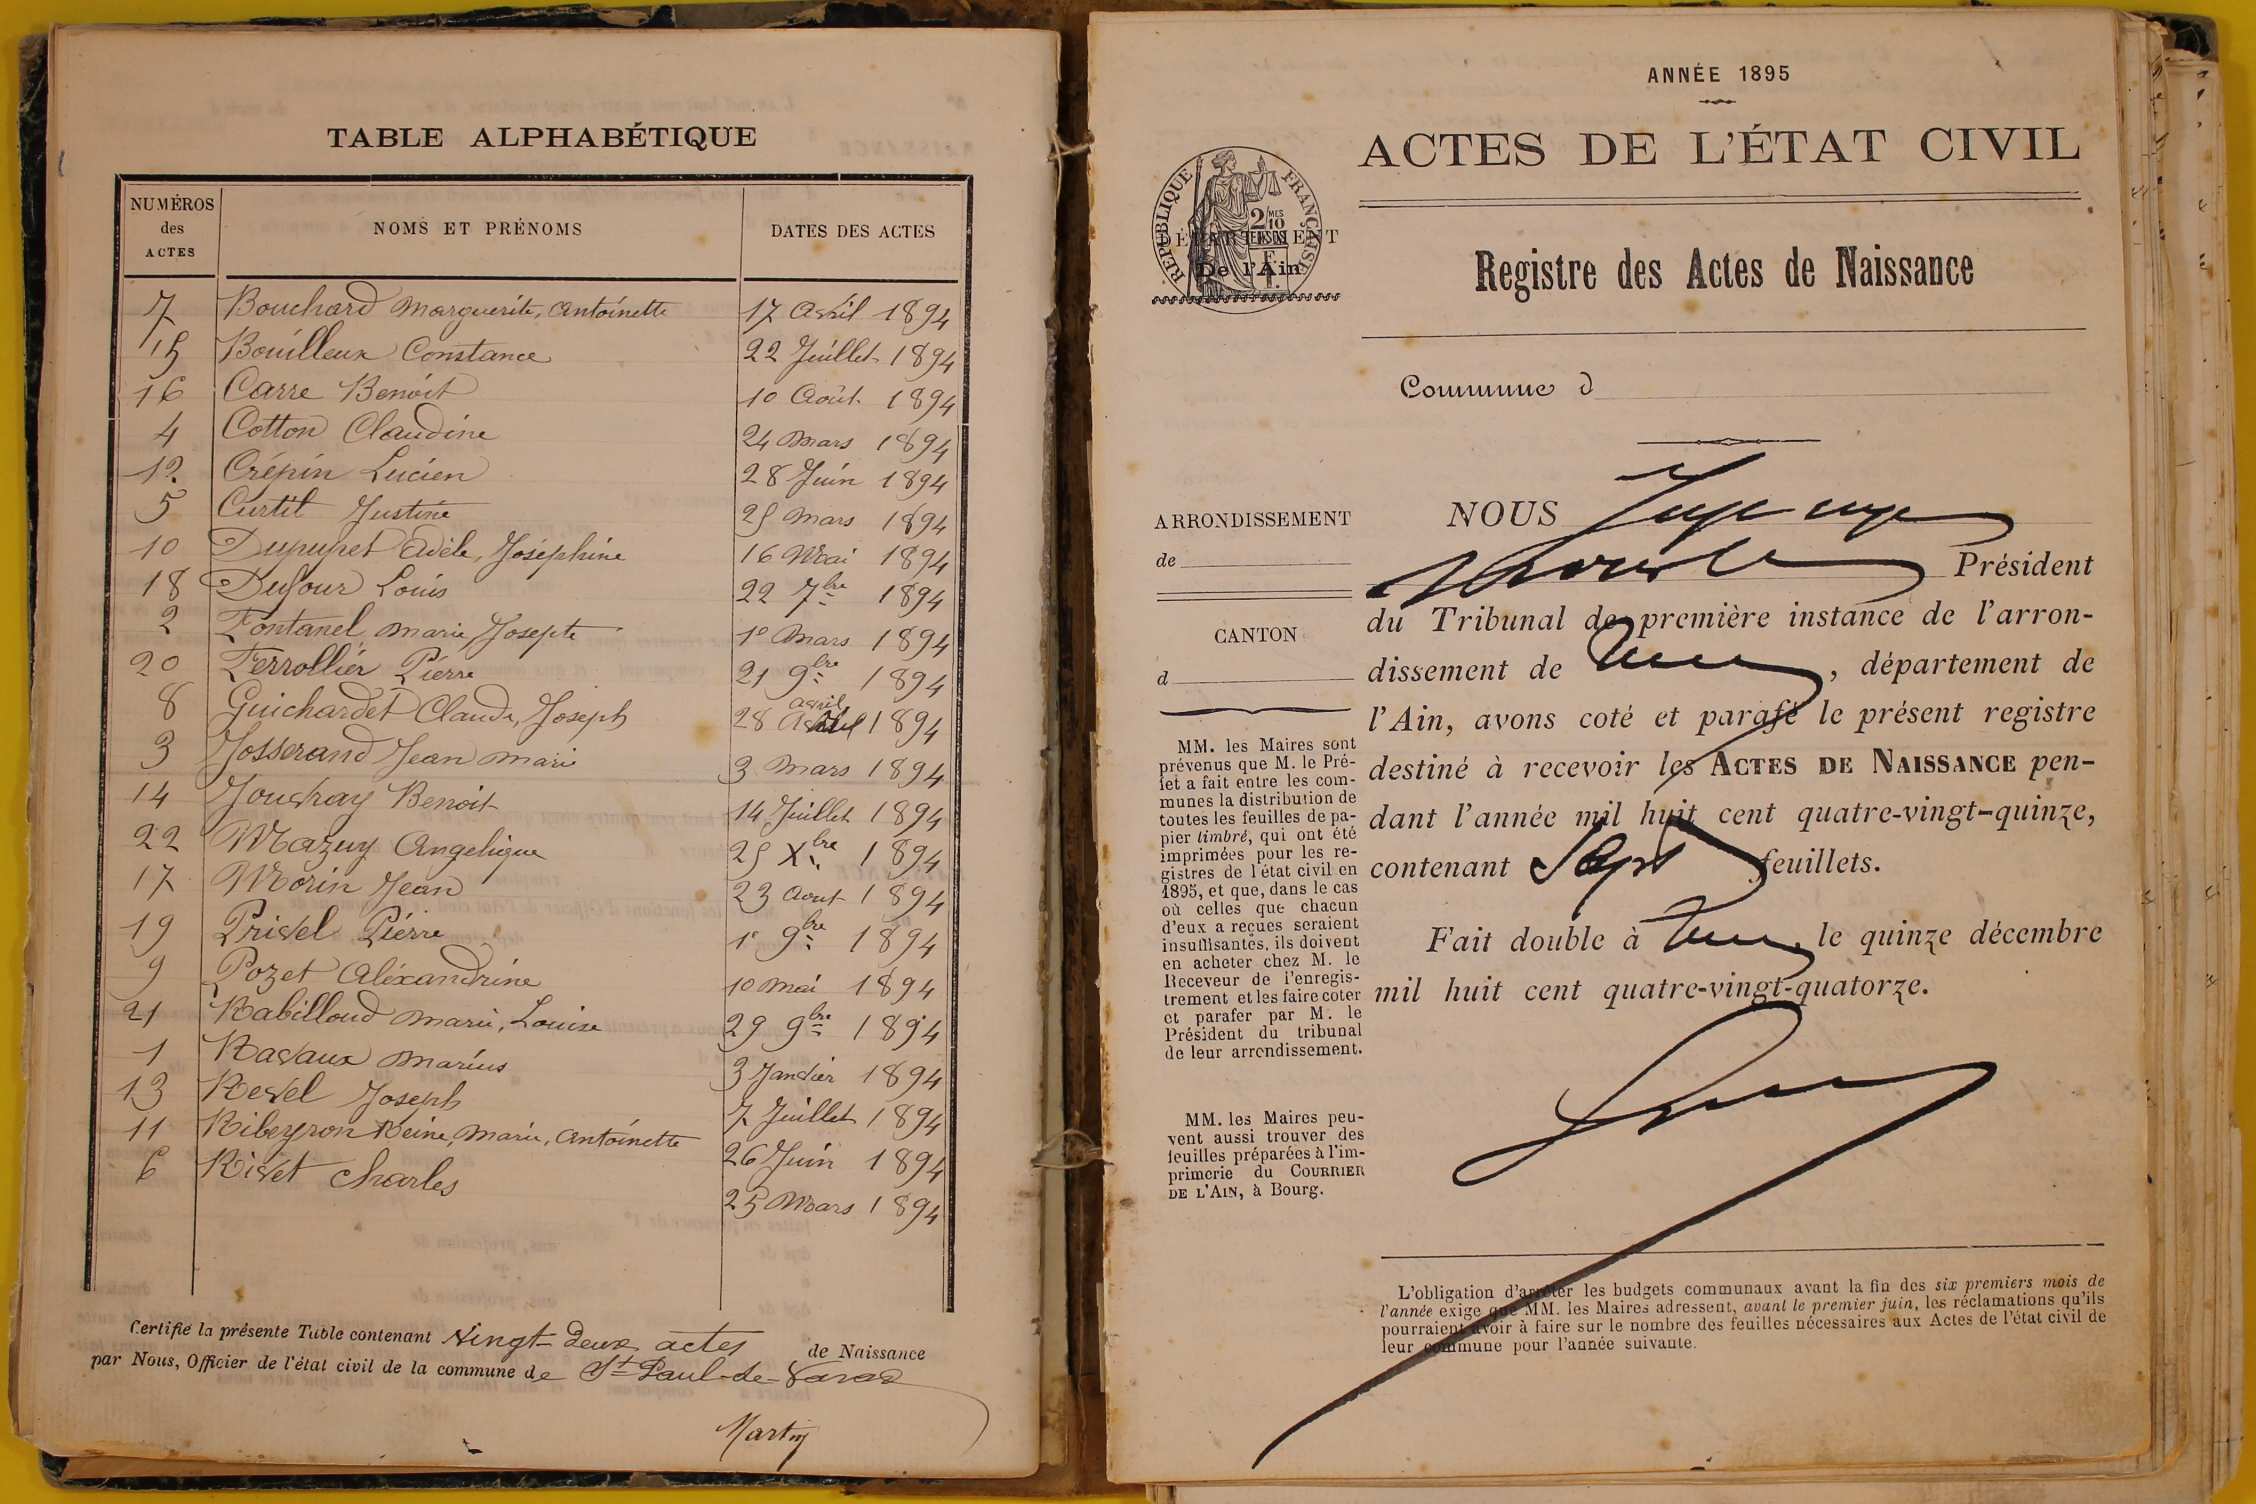 TABLE ALPHABÉTIQUE
NUMÉROS des ACTES NOMS ET PRÉNOMS DATES DES ACTES
7 Bouchard Marguerite, Antoinette 17 Avril 1894
15 Bouilleux Constance 22 Juillet 1894
16 Carre Benoit 10 Août 1894
4 Cotton Claudine 24 Mars 1894
12 Crépin Lucien 28 Juin 1894
5 Curtil Justine 25 Mars 1894
10 Dupupet Adèle, Joséphine 16 Mai 1894
18 Dufour Louis 22 7bre 1894
2 Fontanel Marie, Josepte 1º Mars 1894
20 Ferrollier Pierre 21 9bre 1894
8 Guichardet Claude, Joseph 28 avril 1894
3 Josserand Jean Marie 3 Mars 1894
14 Jouvray Benoit 14 Juillet 1894
22 Mazuy Angelique 25 Xbre 1894
17 Morin Jean 23 Aout 1894
19 Privel Pierre 1º 9bre 1894
9 Pozet Aléxandrine 10 Mai 1894
21 Rabilloud Marie, Louise 29 9bre 1894
1 Ravaux Marius 3 Janvier 1894
13 Revel Joseph 7 Juillet 1894
11 Ribeyron Reine, Marie, Antoinette 26 Juin 1894
6 Rivet Charles 25 Mars 1894
Certifié la présente Table contenant Vingt-deux actes de Naissance
par Nous, Officier de l'état civil de la commune de St Paul-de-Varax
Martin
ANNÉE 1895
ACTES DE L'ÉTAT CIVIL
RÉPUBLIQUE FRANÇAISE
2/10mes EN SUS
1 F.
DÉPARTEMENT
De l'Ain
Registre des Actes de Naissance
Commune d
ARRONDISSEMENT
de
CANTON
d
MM. les Maires sont
prévenus que M. le Pré-
fet a fait entre les com-
munes la distribution de
toutes les feuilles de pa-
pier timbré, qui ont été
imprimées pour les re-
gistres de l'état civil en
1895, et que, dans le cas
où celles que chacun
d'eux a reçues seraient
insuffisantes, ils doivent
en acheter chez M. le
Receveur de l'enregis-
trement et les faire coter
et parafer par M. le
Président du tribunal
de leur arrondissement.
MM. les Maires peu-
vent aussi trouver des
feuilles préparées à l'im-
primerie du COURRIER
DE L'AIN, à Bourg.
NOUS Juge
Président
du Tribunal de première instance de l'arron-
dissement de , département de
l'Ain, avons coté et parafé le présent registre
destiné à recevoir les ACTES DE NAISSANCE pen-
dant l'année mil huit cent quatre-vingt-quinze,
contenant Sept feuillets.
Fait double à , le quinze décembre
mil huit cent quatre-vingt-quatorze.
L'obligation d'arrêter les budgets communaux avant la fin des six premiers mois de
l'année exige que MM. les Maires adressent, avant le premier juin, les réclamations qu'ils
pourraient avoir à faire sur le nombre des feuilles nécessaires aux Actes de l'état civil de
leur commune pour l'année suivante.